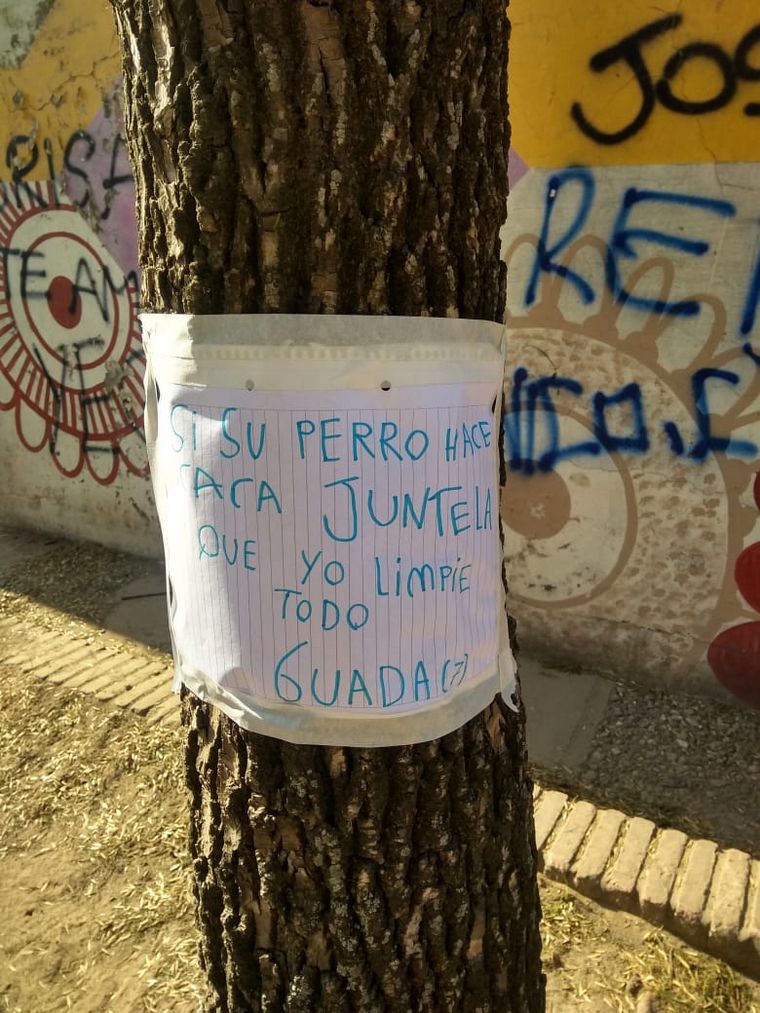 JOS
RISA
TE AM
REI
Si SU PERRO HACE
CACA JUNTELA
QUE YO LiMPiE
TODO
GUADA (7)